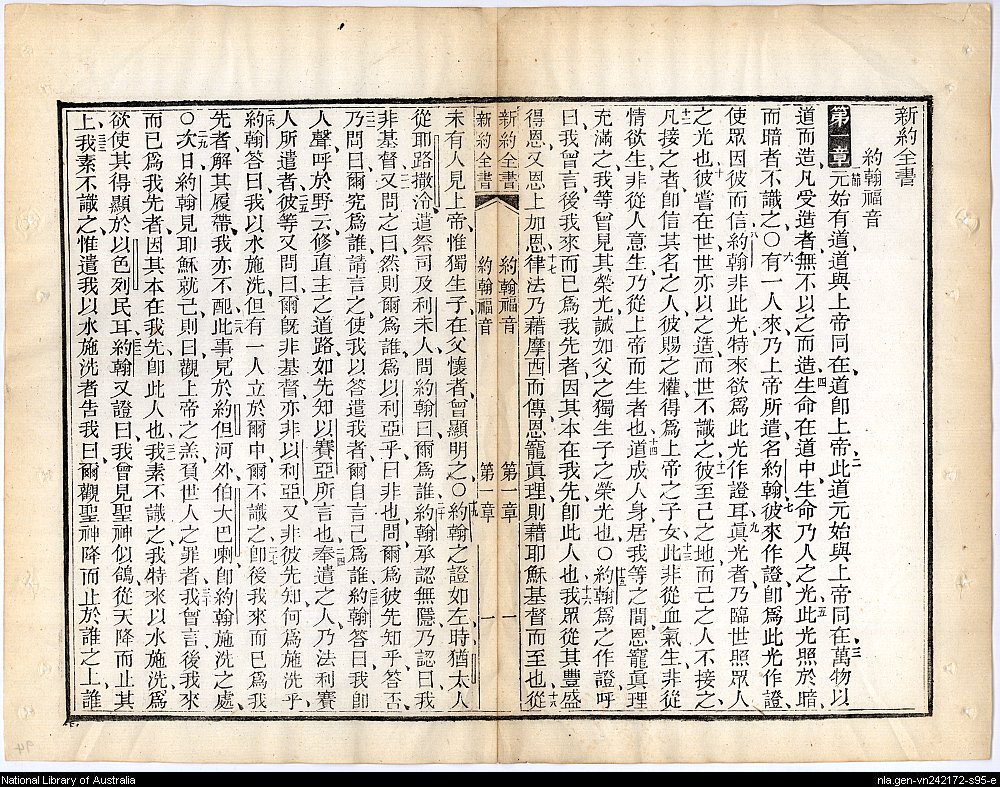 新約全書
約翰福音
第一章一節元始有道道與上帝同在道卽上帝二此道元始與上帝同在三萬物以
道而造凡受造者無不以之而造四生命在道中生命乃人之光五此光照於暗
而暗者不識之〇六有一人來乃上帝所遣名約翰七彼來作證卽爲此光作證
使眾因彼而信八約翰非此光特來欲爲此光作證耳九眞光者乃臨世照眾人
之光也十彼嘗在世世亦以之造而世不識之十一彼至己之地而己之人不接之
十二凡接之者卽信其名之人彼賜之權得爲上帝之子女十三此非從血氣生非從
情欲生非從人意生乃從上帝而生者也十四道成人身居我等之間恩寵眞理
充滿之我等曾見其榮光誠如父之獨生子之榮光也〇十五約翰爲之作證呼
曰我曾言後我來而已爲我先者因其本在我先卽此人也十六我眾從其豐盛
得恩又恩上加恩十七律法乃藉摩西而傳恩寵眞理則藉耶穌基督而至也十八從
新約全書 約翰福音 第一章 一
新約全書 約翰福音 第一章 一
未有人見上帝惟獨生子在父懷者曾顯明之〇十九約翰之證如左時猶太人
從耶路撒冷遣祭司及利未人問約翰曰爾爲誰二十約翰承認無隱乃認曰我
非基督二一又問之曰然則爾爲誰爲以利亞乎曰非也問爾爲彼先知乎答否
二二乃問曰爾究爲誰請言之使我以答遣我者爾自言己爲誰二三約翰答曰我卽
人聲呼於野云修直主之道路如先知以賽亞所言也二四奉遣之人乃法利賽
人所遣者二五彼等又問曰爾旣非基督亦非以利亞又非彼先知何爲施洗乎
二六約翰答曰我以水施洗但有一人立於爾中爾不識之二七卽後我來而已爲我
先者解其履帶我亦不配二八此事見於約但河外伯大巴喇卽約翰施洗之處
〇二九次日約翰見耶穌就己則曰觀上帝之羔負世人之罪者三十我曾言後我來
而已爲我先者因其本在我先卽此人也三一我素不識之我特來以水施洗爲
欲使其得顯於以色列民耳三二約翰又證曰我曾見聖神似鴿從天降而止其
上三三我素不識之惟遣我以水施洗者告我曰爾觀聖神降而止於誰之上誰
94
National Library of Australia
nla.gen-vn242172-s95-e